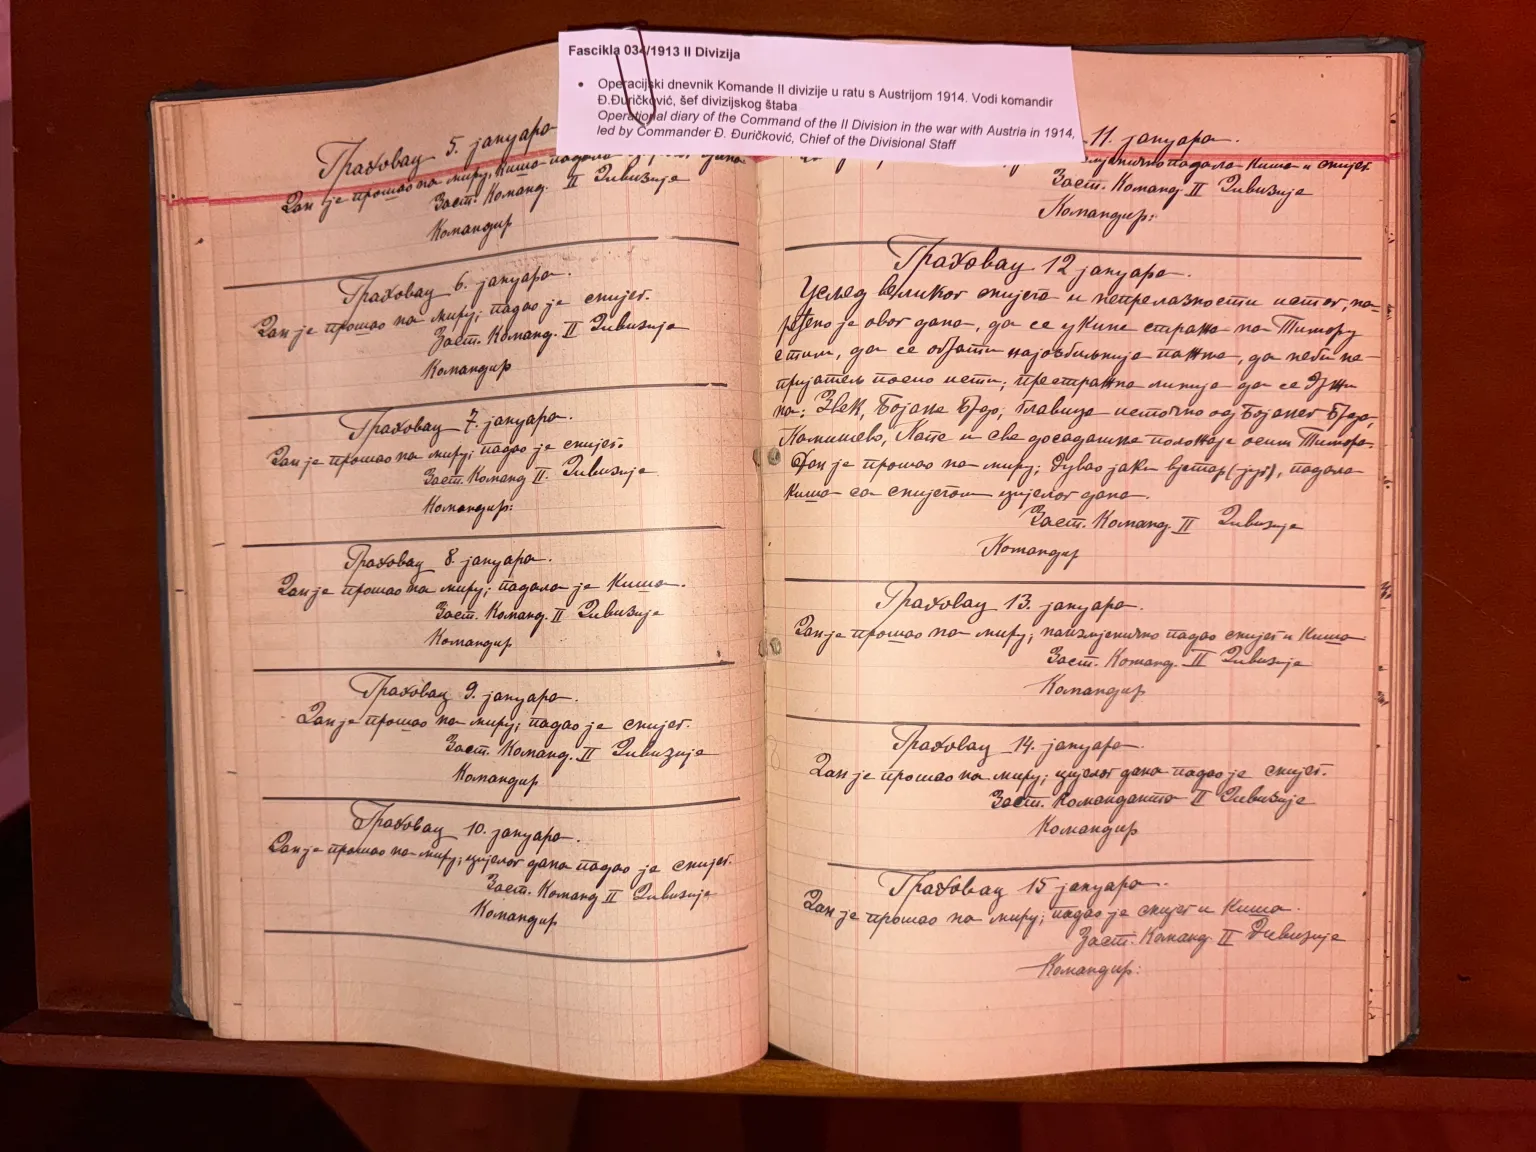 Fascikla 034/1913 II Divizija
• Operacijski dnevnik Komande II divizije u ratu s Austrijom 1914. Vodi komandir
Đ.Đuričković, šef divizijskog štaba
Operational diary of the Command of the II Division in the war with Austria in 1914,
led by Commander Đ. Đuričković, Chief of the Divisional Staff
Граховац 5. јануара
Дан је прошао на миру, киша падала
Заст. Команд. II Дивизије
Командир
Граховац 6. јануара.
Дан је прошао на миру; падао је снијег.
Заст. Команд. II Дивизије
Командир
Граховац 7. јануара.
Дан је прошао на миру; падао је снијег.
Заст. Команд II. Дивизије
Командир:
Граховац 8. јануара.
Дан је прошао на миру; падала је киша.
Заст. Команд. II Дивизије
Командир
Граховац 9. јануара.
Дан је прошао на миру; падао је снијег.
Заст. Команд. II Дивизије
Командир
Граховац 10. јануара.
Дан је прошао на миру; цијелог дана падао је снијег.
Заст. Команд II Дивизије
Командир
11. јануара.
падала киша и снијег
Заст. Команд. II Дивизије
Командир:
Граховац 12 јануара.
Усљед великог снијега и непрелазности истог, на-
ређено је овог дана, да се укине стража на Тимору
с тим, да се обрати најозбиљнија пажња, да неби не-
пријатељ посио исти; престражна линија да се држи
на: Звек, Бојање Брдо, главица источно од Бојањег Брда,
Камишево, Капе и све досадашње положаје осим Тимора.
Дан је прошао на миру; дувао јаки вјетар (југ), падала
киша са снијегом цијелог дана.
Заст. Команд. II Дивизије
Командир
Граховац 13. јануара.
Дан је прошао на миру; наизмјенично падао снијег и киша
Заст. Команд. II Дивизије
Командир
Граховац 14. јануара.
Дан је прошао на миру; цијелог дана падао је снијег.
Заст. Команданта II Дивизије
Командир
Граховац 15 јануара.
Дан је прошао на миру; падао је снијег и киша.
Заст. Команд. II Дивизије
Командир: